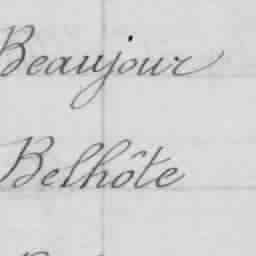 Beaujour
Belhôte